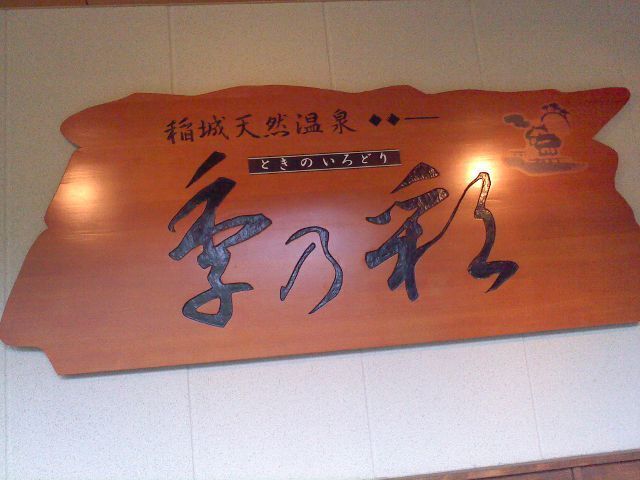 稲城天然温泉 ◆◆—
ときのいろどり
季乃彩